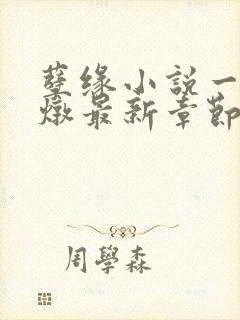 孽缘小説一
燉最新章節
周學森